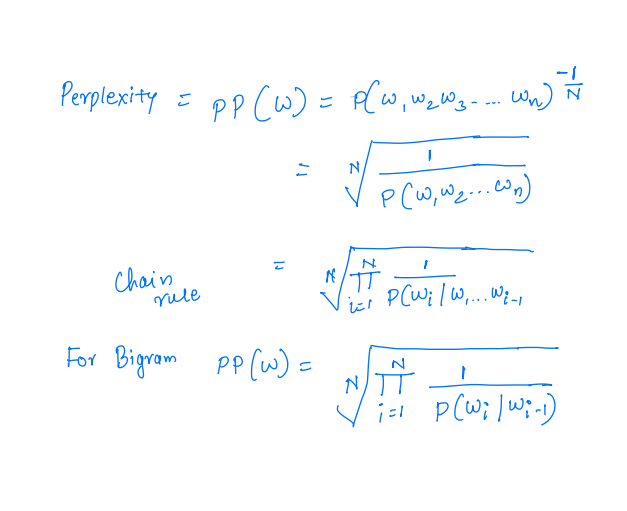 Perplexity = PP(W) = P(w₁w₂w₃.... wₙ)^(-1/N)
= ᴺ√(1 / P(w₁w₂...wₙ))
Chain rule = ᴺ√(∏ᵢ₌₁ᴺ 1 / P(wᵢ|w₁...wᵢ₋₁
For Bigram PP(W) = ᴺ√(∏ᵢ₌₁ᴺ 1 / P(wᵢ|wᵢ₋₁))